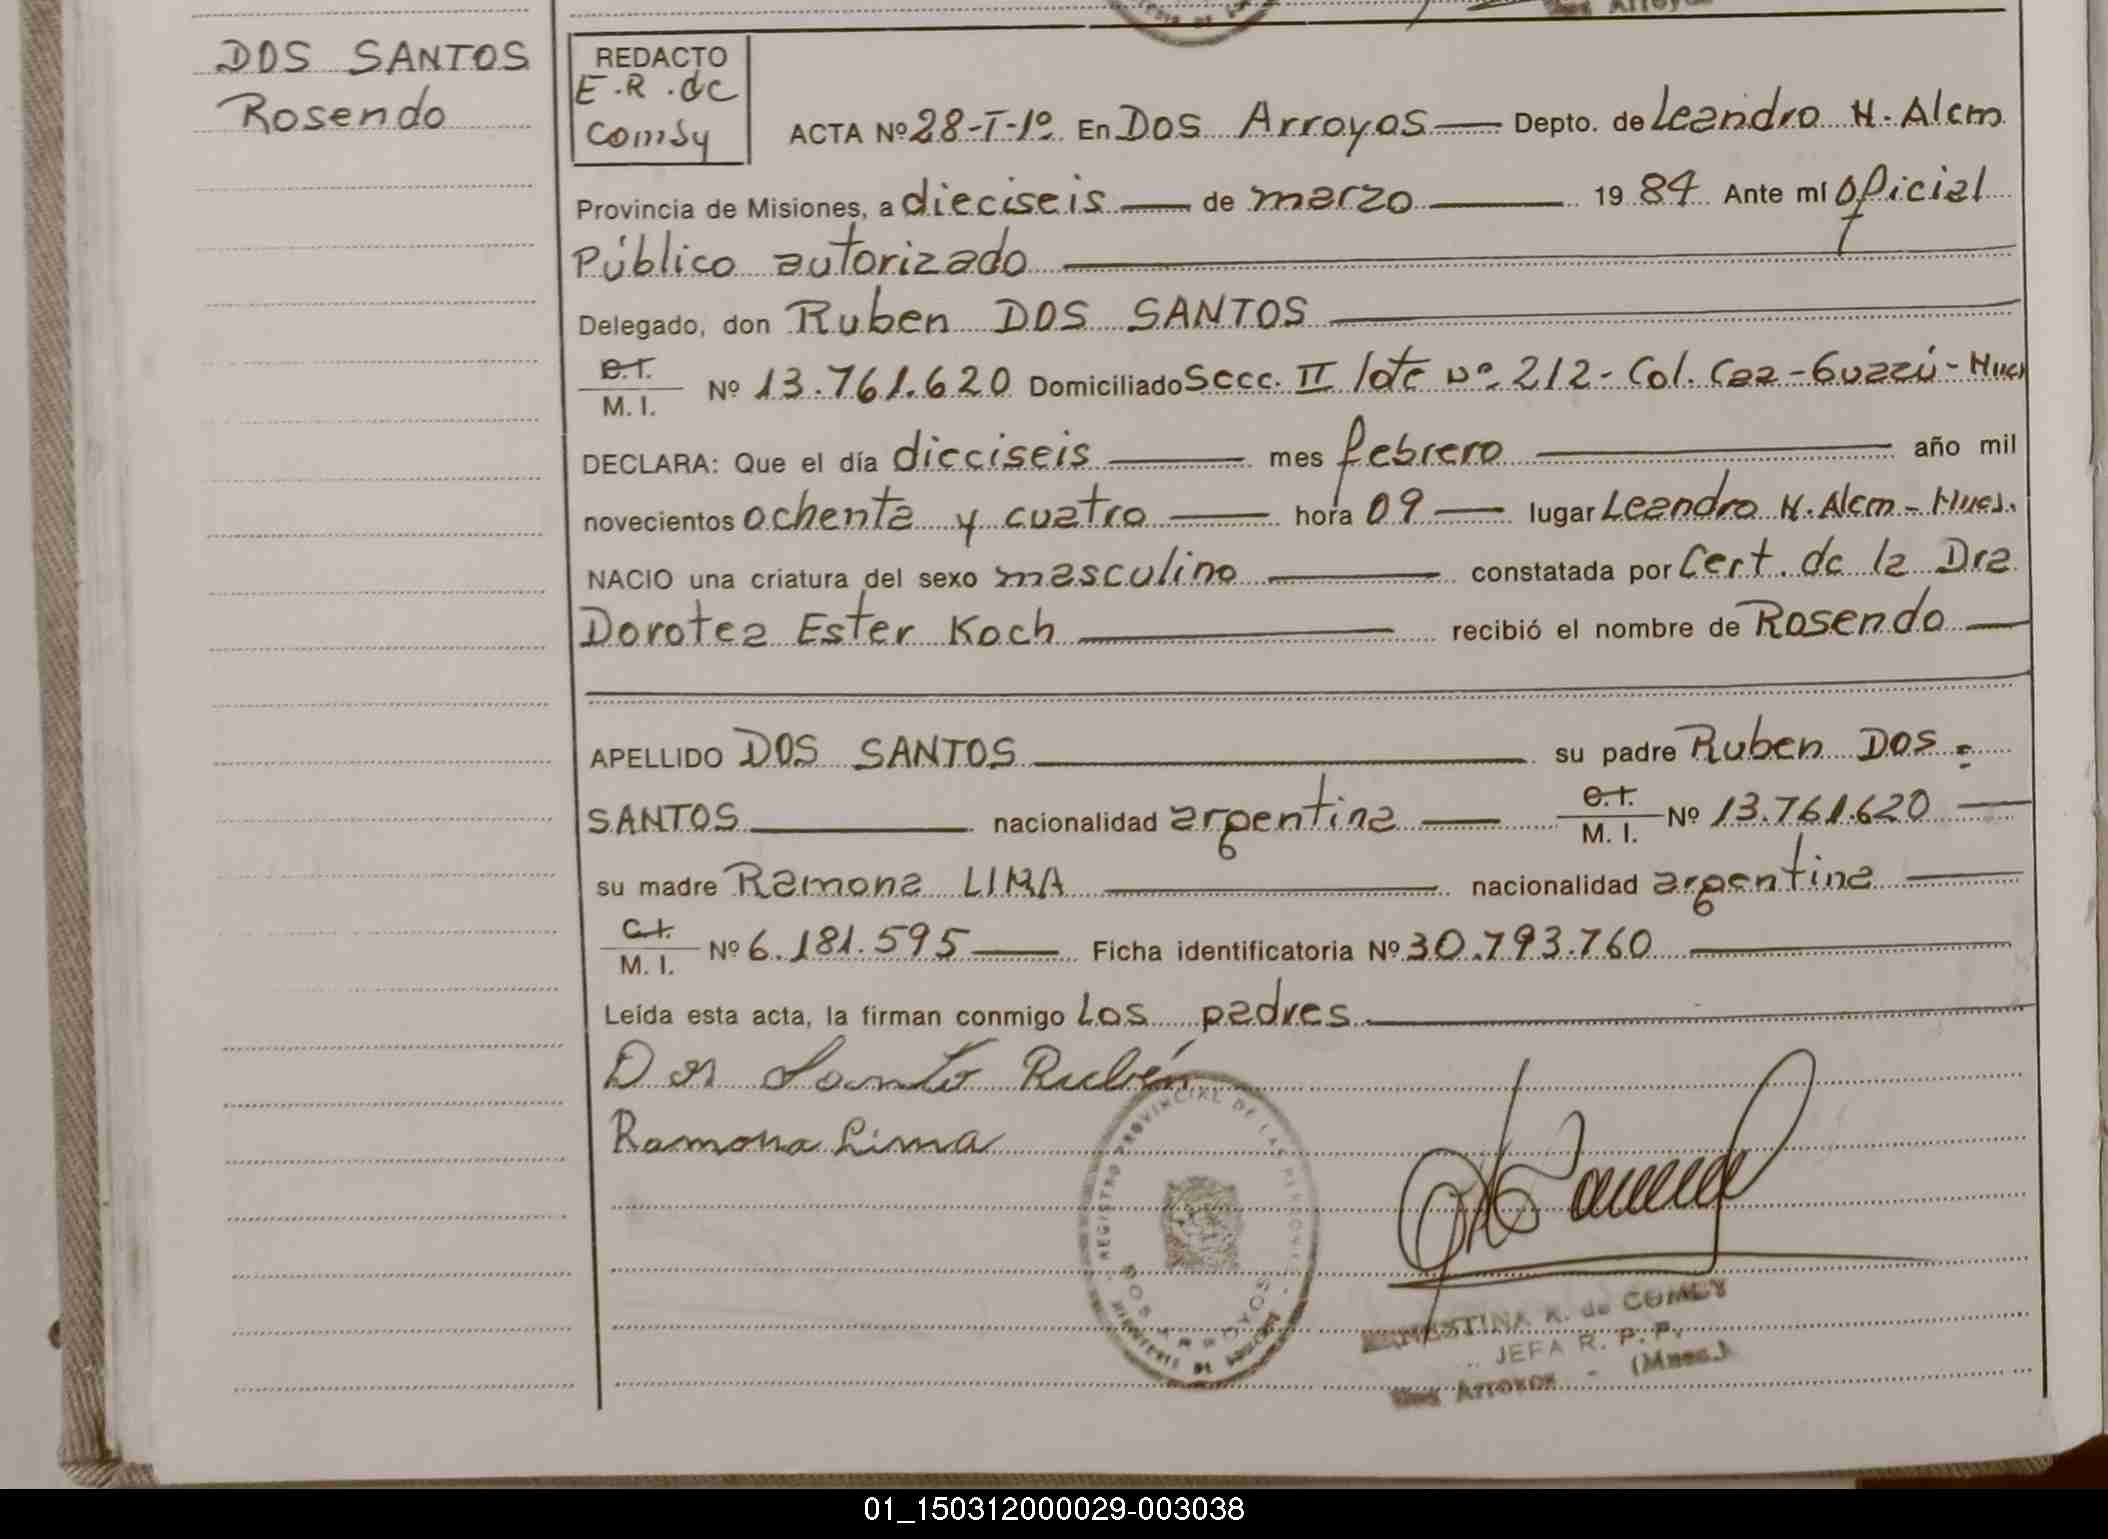 DOS SANTOS
Rosendo
REDACTO
E.R. de
Comsy
ACTA Nº 28-I-1º En Dos Arroyos Depto. de Leandro N. Alem
Provincia de Misiones, a dieciseis de marzo 1984 Ante mí Oficial
Público autorizado
Delegado, don Ruben DOS SANTOS
C.I.
M. I. Nº 13.761.620 Domiciliado Secc. II lote nº 212 - Col. Caa-Guazú - Mnes
DECLARA: Que el día dieciseis mes febrero año mil
novecientos ochenta y cuatro hora 09 lugar Leandro N. Alem - Mnes.
NACIO una criatura del sexo masculino constatada por Cert. de la Dra
Dorotea Ester Koch recibió el nombre de Rosendo
APELLIDO DOS SANTOS su padre Ruben DOS
SANTOS nacionalidad argentina C.I. M. I. Nº 13.761.620
su madre Ramona LIMA nacionalidad argentina
C.I.
M. I. Nº 6.181.595 Ficha identificatoria Nº 30.793.760
Leída esta acta, la firman conmigo Los padres
Dos Santo Rubén
Ramona Lima
REGISTRO PROVINCIAL DE LAS PERSONAS
DOS ARROYOS
ERNESTINA R. de COMSY
JEFA R. P. P.
Dos Arroyos - (Mnes.)
01_150312000029-003038